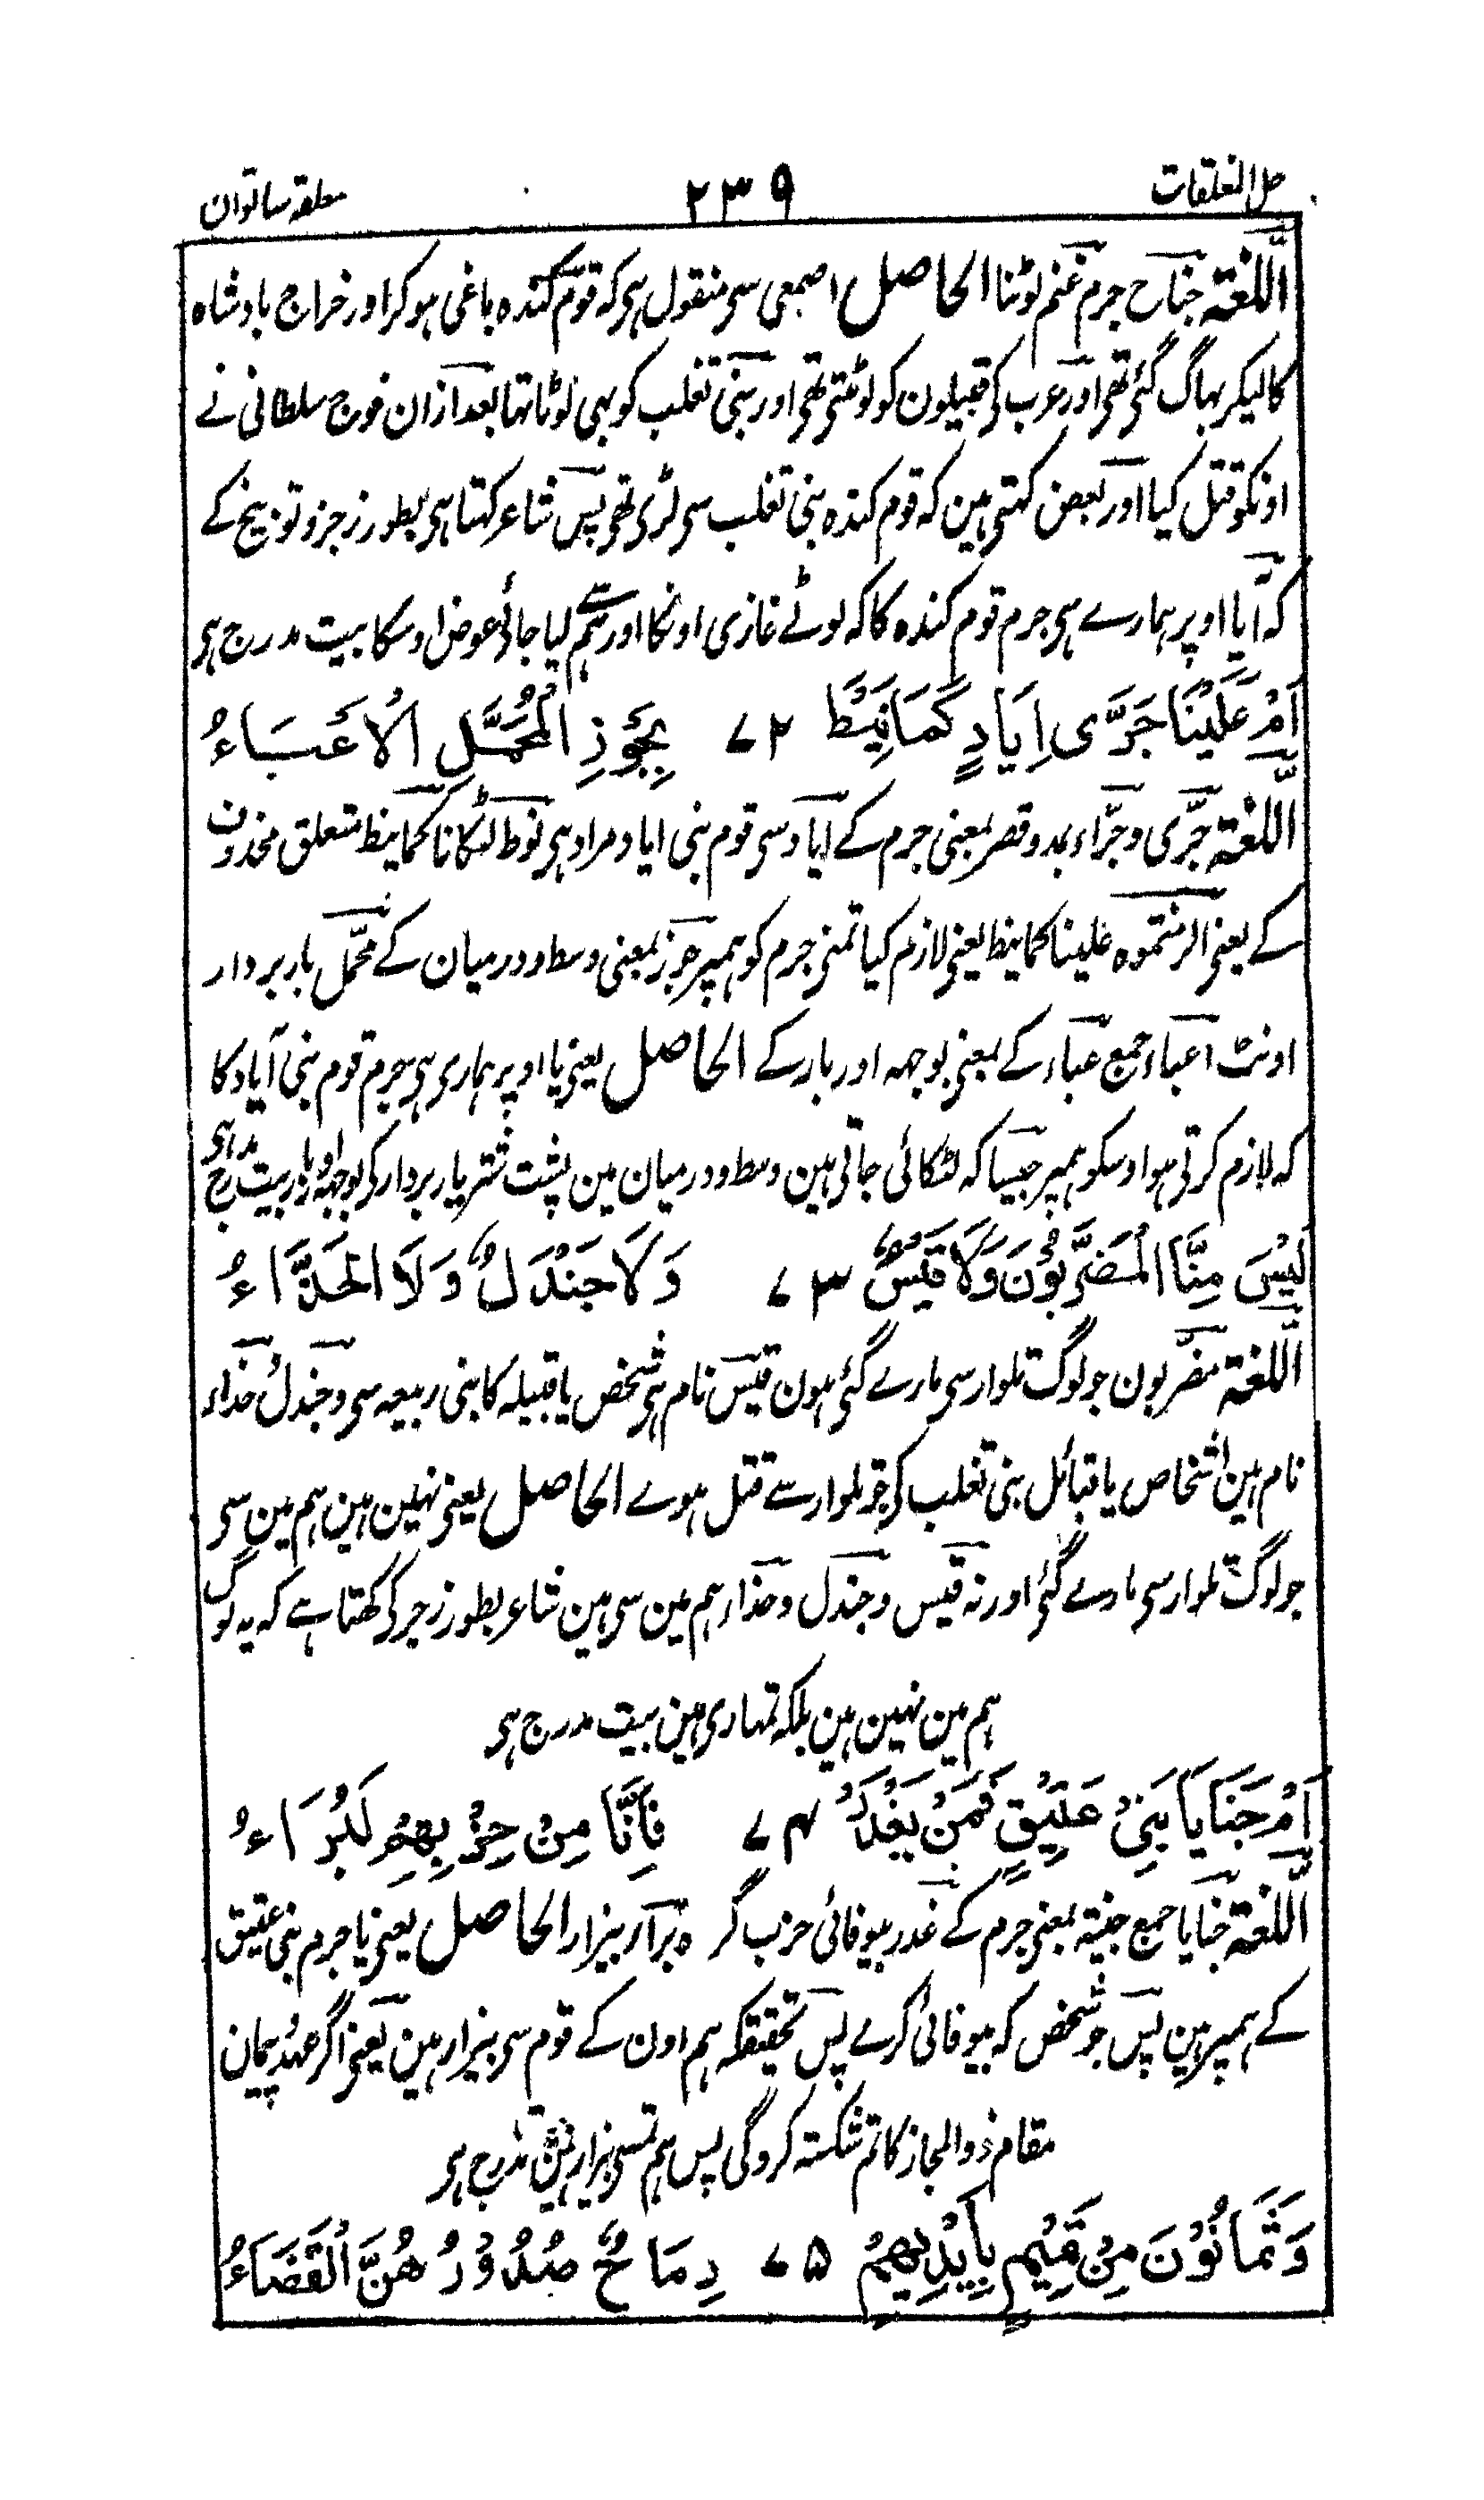 حل المعلقات ۲۳۹ معلقہ ساتوان
اللغة جناح جرم غنم لوٹنا الحاصل اصمعی سی منقول ہی کہ قوم کندہ باغی ہوکر اور خراج بادشاہ
کا لیکر بہاگ گئی تھی اور عرب کی قبیلون کو لوٹتی تھی اور بنی تغلب کو بہی لوٹا تہا بعد ازان فوج سلطانی نے
اونکو قتل کیا اور بعض کہتی ہین کہ قوم کندہ بنی تغلب سی لڑی تھی پس شاعر کہتا ہی بطور زجر و توبیخ کے
کہ آیا اوپر ہمارے ہی جرم قوم کندہ کا کہ لوٹے غازی اونکا اور ہمسے لیا جائی عوض اوسکا بیت مدرج ہی
اَمْ عَلَيْنَا جَرَّى اِيَادٍ كَمَا نِيْطَ ۷۲ بِجَوْزِ الْمُحَمَّلِ الْاَعْبَاءُ
اللغة جرّی و جرّاء بمد و قصر بمعنی جرم کے ایاد سی قوم بنی ایاد مراد ہی نوط لٹکانا کما نیط متعلق محذوف
کے یعنی الزمتموہ علینا کما نیط یعنی لازم کیا تمنی جرم کو ہمپر جوز بمعنی وسط و درمیان کے محمّل بار بردار
اونٹ اعباء جمع عباء کے بمعنی بوجہہ اور بار کے الحاصل یعنی یا اوپر ہماری ہی جرم قوم بنی ایاد کا
کہ لازم کرتی ہو اوسکو ہمپر جیسا کہ لٹکائی جاتی ہین وسط و درمیان مین پشت شتر بار بردار کی بوجہہ اور بار بیت مدرج ہی
لَيْسَ مِنَّا الْمُضَرَّبُوْنَ وَلَا قَيْسٌ ۷۳ وَلَا جَنْدَلٌ وَلَا الْحَذَّاءُ
اللغة مضرّبون جو لوگ تلوار سی مارے گئی ہون قیس نام ہی شخص یا قبیلہ کا بنی ربیعہ سی و جندل حذاء
نام ہین اشخاص یا قبائل بنی تغلب کی جو تلوار سے قتل ہوے الحاصل یعنی نہین ہین ہم مین سی
جو لوگ تلوار سی مارے گئی اور نہ قیس و جندل و حذاء ہم مین سی ہین شاعر بطور زجر کی کھتا ہے کہ یہ لوگ
ہم مین نہین ہین بلکہ تمہاری ہین بیت مدرج ہی
اَمْ جَنَايَا بَنِيْ عَتِيْقٍ فَمَنْ يَغْدُرْ ۷۴ فَاِنَّا مِنْ حِزْبِهِمْ لَبُرَاءُ
اللغة جنایا جمع جنیۃ بمعنی جرم کے غدر بیوفائی حزب گروہ برآء بیزار الحاصل یعنی یا جرم بنی عتیق
کے ہمپر ہین پس جو شخص کہ بیوفائی کرے پس تحقیقکہ ہم اون کے قوم سی بیزار ہین یعنی اگر عہد و پیمان
مقام ذوالمجاز کا تم شکستہ کروگی پس ہم تمسی بیزار ہین بیت مدرج ہی
وَثَمَانُوْنَ مِنْ تَمِيْمٍ بِاَيْدِيْهِمْ ۷۵ رِمَاحٌ صُدُوْرُهُنَّ الْقَضَاءُ